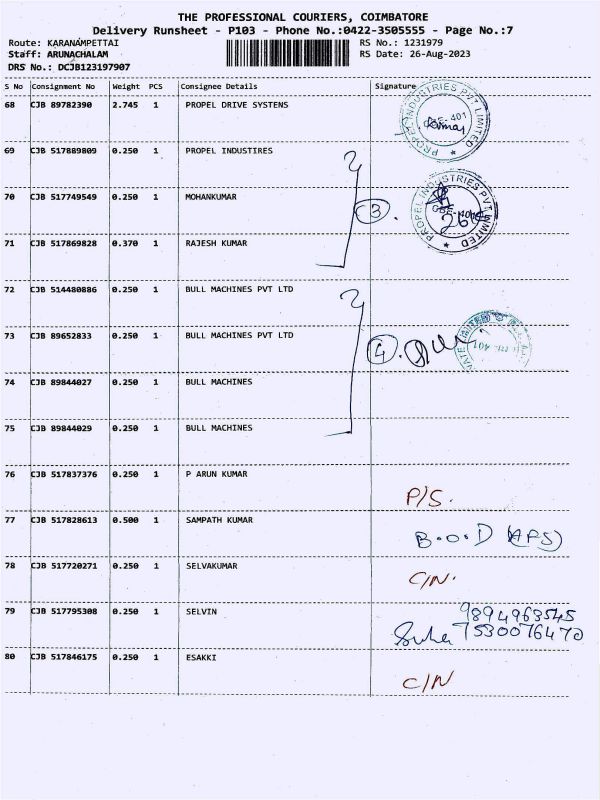 THE PROFESSIONAL COURIERS, COIMBATORE
Delivery Runsheet - P103 - Phone No.:0422-3505555 - Page No.:7
Route: KARANAMPETTAI RS No.: 1231979
Staff: ARUNACHALAM RS Date: 26-Aug-2023
DRS No.: DCJB123197907
S No Consignment No Weight PCS Consignee Details Signature
68 CJB 89782390 2.745 1 PROPEL DRIVE SYSTENS
PROPEL INDUSTRIES PVT LIMITED
69 CJB 517889809 0.250 1 PROPEL INDUSTIRES
70 CJB 517749549 0.250 1 MOHANKUMAR
3.
PROPEL INDUSTRIES PVT LIMITED
71 CJB 517869828 0.370 1 RAJESH KUMAR
72 CJB 514480886 0.250 1 BULL MACHINES PVT LTD
73 CJB 89652833 0.250 1 BULL MACHINES PVT LTD
4.
74 CJB 89844027 0.250 1 BULL MACHINES
75 CJB 89844029 0.250 1 BULL MACHINES
76 CJB 517837376 0.250 1 P ARUN KUMAR
P/S.
77 CJB 517828613 0.500 1 SAMPATH KUMAR
B.O.D (APS)
78 CJB 517720271 0.250 1 SELVAKUMAR
C/N.
79 CJB 517795308 0.250 1 SELVIN
9894963545
7530076470
80 CJB 517846175 0.250 1 ESAKKI
C/N